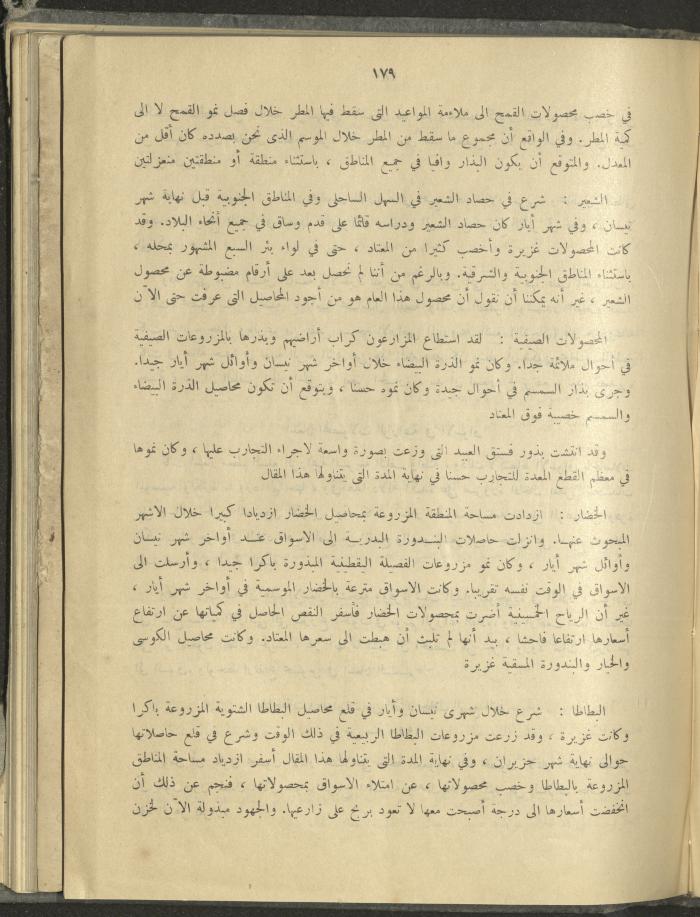 ١٧٩
في خصب محصولات القمح الى ملاءمة المواعيد التى سقط فيها المطر خلال فصل نمو القمح لا الى
كمية المطر. وفي الواقع أن مجموع ما سقط من المطر خلال الموسم الذى نحن بصدده كان أقل من
المعدل. والمتوقع أن يكون البذار وافيا في جميع المناطق ، باستثناء منطقة أو منطقتين منعزلتين
الشعير : شرع في حصاد الشعير في السهل الساحلى وفي المناطق الجنوبية قبل نهاية شهر
نيسان ، وفي شهر أيار كان حصاد الشعير ودراسه قائما على قدم وساق في جميع أنحاء البلاد. وقد
كانت المحصولات غزيرة وأخصب كثيرا من المعتاد ، حتى في لواء بئر السبع المشهور بمحله ،
باستثناء المناطق الجنوبية والشرقية. وبالرغم من أننا لم نحصل بعد على أرقام مضبوطة عن محصول
الشعير ، غير أنه يمكننا أن نقول أن محصول هذا العام هو من أجود المحاصيل التى عرفت حتى الآن
المحصولات الصيفية : لقد استطاع المزارعون كراب أراضيهم وبذرها بالمزروعات الصيفية
في أحوال ملائمة جدا. وكان نمو الذرة البيضاء خلال أواخر شهر نيسان وأوائل شهر أيار جيدا.
وجرى بذار السمسم في أحوال جيدة وكان نموه حسنا ، ويتوقع أن تكون محاصيل الذرة البيضاء
والسمسم خصيبة فوق المعتاد
وقد انتشت بذور فستق العبيد التى وزعت بصورة واسعة لاجراء التجارب عليها ، وكان نموها
في معظم القطع المعدة للتجارب حسنا في نهاية المدة التى يتناولها هذا المقال
الخضار : ازدادت مساحة المنطقة المزروعة بمحاصيل الخضار ازديادا كبيرا خلال الاشهر
المبحوث عنها. وانزلت حاصلات البندورة البدرية الى الاسواق عند أواخر شهر نيسان
وأوائل شهر أيار ، وكان نمو مزروعات الفصيلة اليقطينية المبذورة باكرا جيدا ، وأرسلت الى
الاسواق في الوقت نفسه تقريبا. وكانت الاسواق مترعة بالخضار الموسمية في أواخر شهر أيار ،
غير أن الرياح الخمسينية أضرت بمحصولات الخضار فأسفر النقص الحاصل في كمياتها عن ارتفاع
أسعارها ارتفاعا فاحشا ، بيد أنها لم تلبث أن هبطت الى سعرها المعتاد. وكانت محاصيل الكوسى
والخيار والبندورة المسقية غزيرة
البطاطا : شرع خلال شهرى نيسان وأيار في قلع محاصيل البطاطا الشتوية المزروعة باكرا
وكانت غزيرة ، وقد زرعت مزروعات البطاطا الربيعية في ذلك الوقت وشرع في قلع حاصلاتها
حوالى نهاية شهر حزيران ، وفي نهاية المدة التى يتناولها هذا المقال أسفر ازدياد مساحة المناطق
المزروعة بالبطاطا وخصب محصولاتها ، عن امتلاء الاسواق بمحصولاتها ، فنجم عن ذلك أن
انخفضت أسعارها الى درجة أصبحت معها لا تعود بربح على زارعيها. والجهود مبذولة الآن لخزن